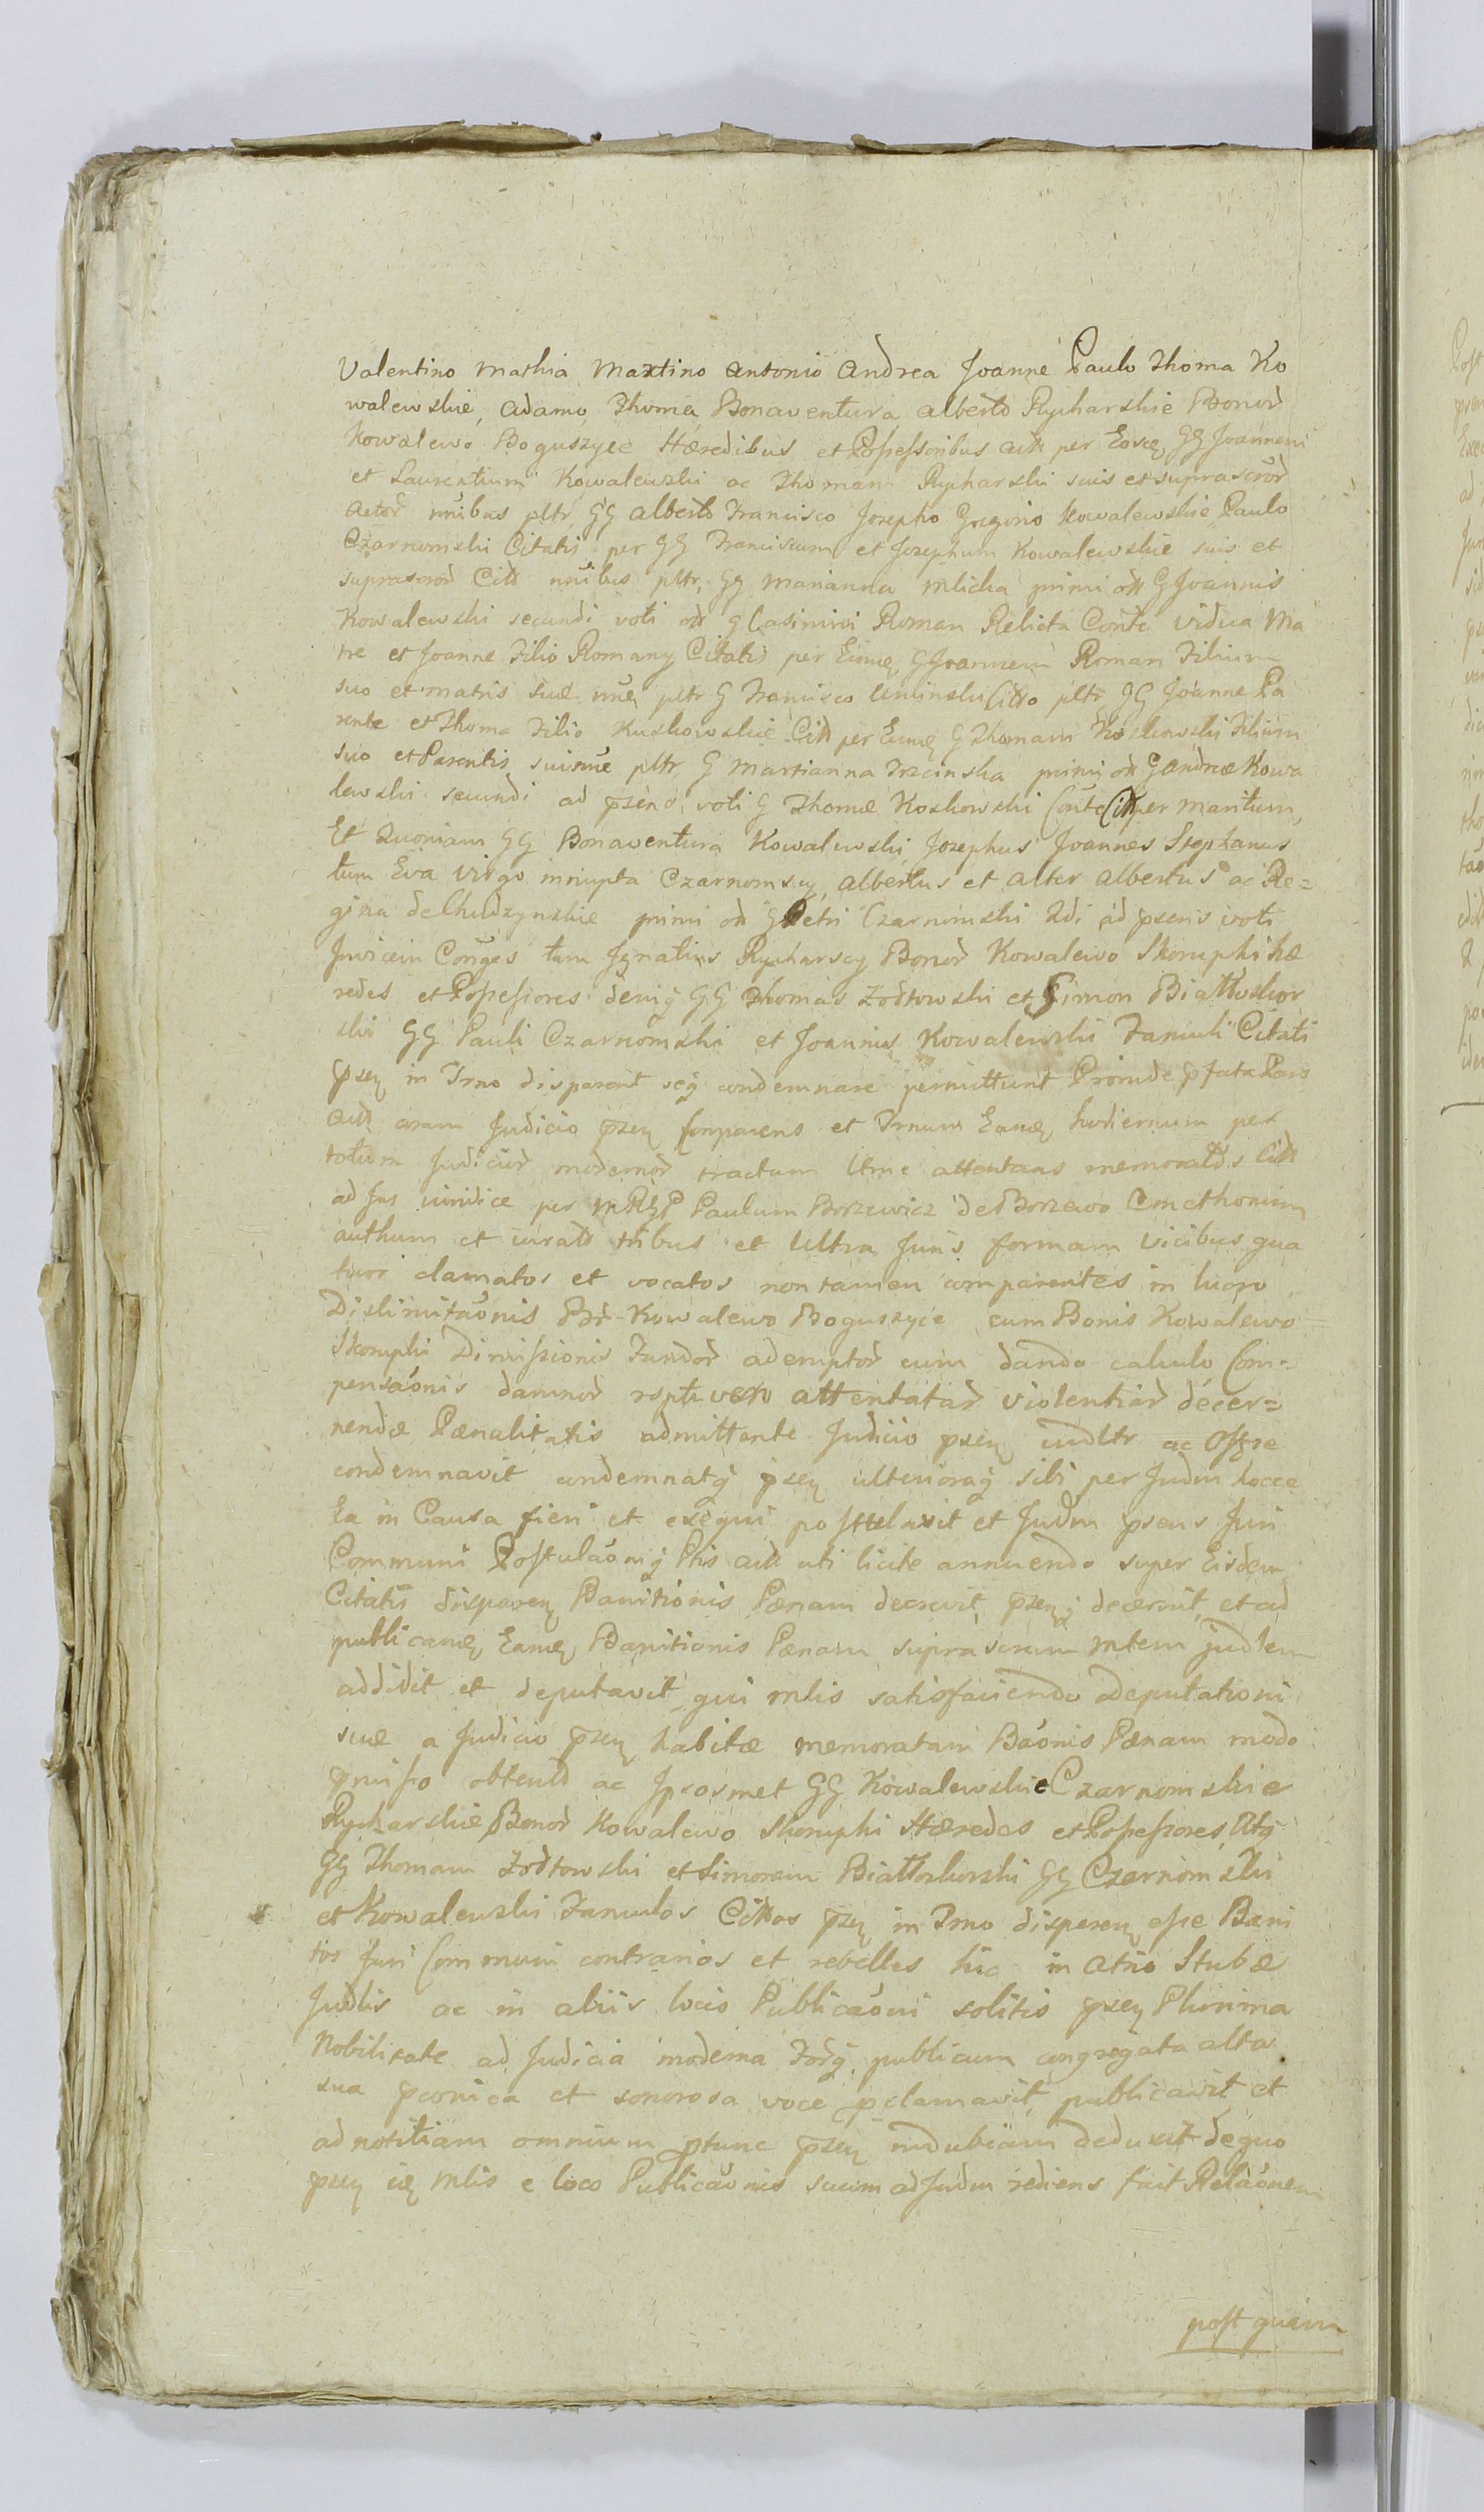 Valentino Mathia Martino Antonio Andrea Joanne Paulo Thoma Ko
walewskie, Adamo Thoma Bonaventura Alberto Rycharskie Bonor
Kowalewo Boguszyce Hæredibus et Poßeßoribus Actt per Eosq GG Joannem
et Laurentium Kowalewski ac Thomam Rycharski suis et suprascror
Actor nnibus pltr GG Alberto Francisco Josepho Gregorio Kowalewskie Paulo
Czarnomski Citatis per GG Franciscum et Josephum Kowalewskie suis et
suprascror Citt nnibus pltr, GG Marianna Mlicka primi ott G Joannis
Kowalewski secundi voti ott G Casimiri Roman Relicta Conte vidua Ma
tre et Joanne Filio Romany Citatis per Eumq G Joannem Roman Filium
suo et matris suæ nne pltr G Francisco Uminski Citto pltr GG Joanne Pa
rente et Thoma Filio Kuskowskie Citt per Eumq G Thomam Koskowski Filium
suo et Parentis sui nne pltr G Marianna Trzcinska primi ott G Andreæ Kowa
lewski secundi ad psens voti G Thomæ Koskowski Conte Citt per maritum,
Et Quoniam GG Bonaventura Kowalewski Josephus Joannes Stephanus
tum Eva virgo innupta Czarnomscy, Albertus et alter Albertus ac Re=
gina de Chudzynskie primi ott G Petri Czarnomski 2di ad psens voti
Invicem Conges tam Ignatius Rycharscy Bonor Kowalewo Skorupki hæ
redes et Poßeßores deniq GG Thomas Zołtowski et Simon Białłoskor
ski GG Pauli Czarnomski et Joannis Kowalewski Famuli Citati
psen in Trno disparent seq condemnare permittunt Proinde pfata Pars
Actt coram Judicio psen Comparens et Trnum Eamq hodiernum per
totum Judicior modernor tractum Ltme attentans memoratos Citt
ad Jus juridice per MRGP Paulum Borzewicz de Borzewo Cmethonim
authum et jurato tribus et ultra Juris formam vicibus qua
tuor clamatos et vocatos non tamen comparentes in lucro
Dislimitaonis Br Kowalewo Boguszyce cum Bonis Kowalewo
Skorupki Dimißionis Fundor ademptor cum dando calculo Com=
pensaonis damnor rsptu vero attentatar violentiar decer=
nendæ Pænalitatis admittente Judicio psen judltr ac Oßse
condemnavit condemnatq psen ulterioraq sibi per Judm hocce
Ea in Causa fieri et exequi postulavit et Judm psens Juri
Communi Postulaoniq Ptis Actt uti licite annuendo super Eisdem
Citatis disparen Banitionis Pænam decrevit, psenq decernit, et ad
publicanq Eamq Banitionis Pænam suprascrum Mtem judlem
addidit et deputavit qui Mlis satisfaciendo deputationi
suæ a Judicio psen habitæ memoratam Baonis Pænam modo
pmißo obtenta ac Ipsosmet GG Kowalewskie Czarnomskie
Rycharskie Bonor Kowalewo Skorupki Hæredes et Poßeßores, Atq
GG Thomam Zołtowski et Simonem Białłoskorski GG Czarnomski
et Kowalewski Famulos Cittos psen in Trno disparen eße Bani
tos Juri Communi contrarios et rebelles hic in Atrio Stubæ
Judlis ac in aliis locis Publicaoni solitis psen Plurima
Nobilitate ad Judicia moderna Forq publicum congregata alta
sua pconica et sonorosa voce pclamavit, publicavit et
ad notitiam omnium ptunc psen indubiam deduxit de quo
psen isq Mlis e loco Publicaonis suum ad Judm rediens fecit Relaonem
post quam